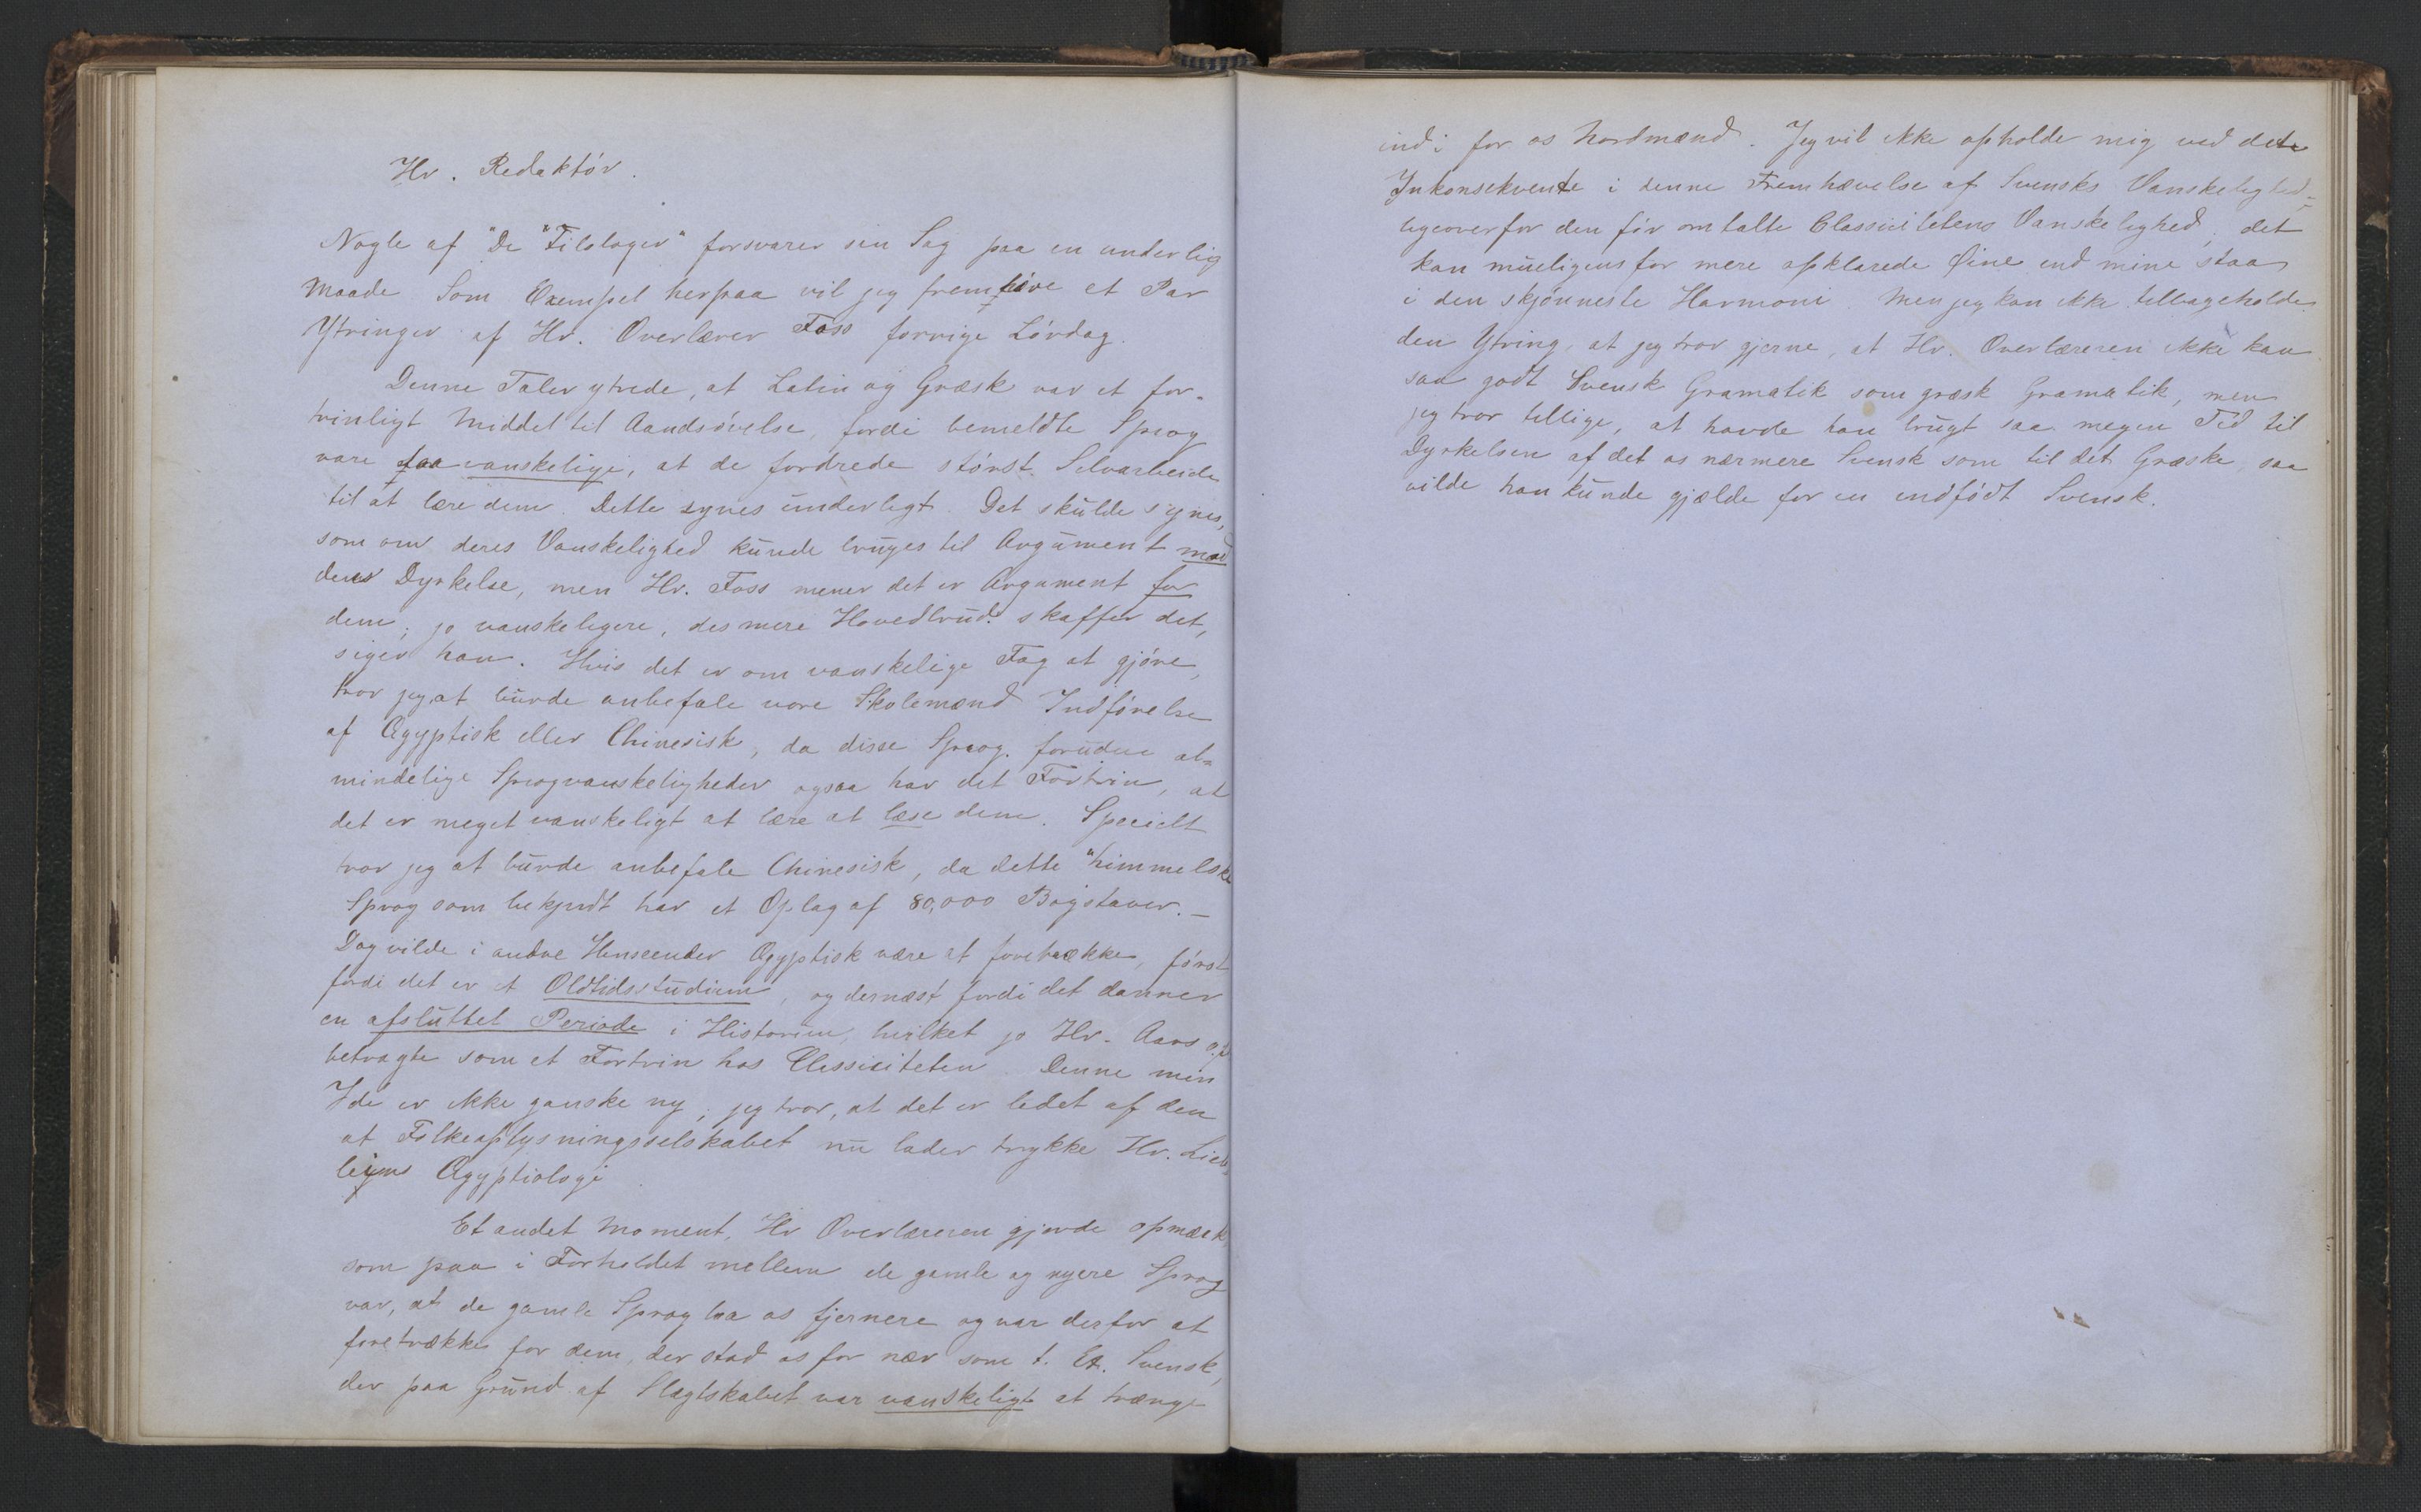 Hr. Redaktör.
Nogle af "De "Filologer" forsvarer sin Sag paa en underlig
Maade Som Exempel herpaa vil jeg fremhæve et Par
Ytringer af Hr. Overlærer Foss forrige Lördag.
Denne Taler ytrede, at Latin og Græsk var et for-
trinligt Middel til Aandsövelse, fordi bemeldte Sprog
vare saa vanskelige, at de fordrede störst Selvarbeide
til at lære dem. Dette synes underligt. Det skulde synes,
som om deres Vanskelighed kunde bruges til Argument mod
deres Dyrkelse, men Hr. Foss mener det er Argument for
dem; jo vanskeligere, des mere Hovedbrud skaffer det,
siger han. Hvis det er om vanskelige Fag at gjöre,
tror jeg at burde anbefale vore Skolemænd Indförelse
af Ægyptisk eller Chinesisk, da disse Sprog foruden al-
mindelige Sprogvanskeligheder ogsaa har det Fortrin, at
det er meget vanskeligt at lære at læse dem. Specielt
tror jeg at burde anbefale Chinesisk, da dette "himmelske
Sprog som bekjendt har et Oplag af 80,000 Bogstaver. –
Dog vilde i andre Henseender Ægyptisk være at foretrække, först
fordi det er et Oldtidsstudium, og dernæst fordi det danner
en afsluttet Periode i Historien, hvilket jo Hr. Aars o.fl
betragte som et Fortrin hos Classiciteten. Denne min
Ide er ikke ganske ny; jeg tror, at det er ledet af den
at Folkeoplysningsselskabet nu lader trykke Hr. Lieb-
leins Ægyptiologi
Et andet Moment, Hr Overlæreren gjorde opmærk-
som paa i Forholdet mellem de gamle og nyere Sprog
var, at de gamle Sprog laa os fjernere og var derfor at
foretrække for dem, der stod os for nær som t. Ex. Svensk,
der paa Grund af Slægtskabet var vanskeligt at trænge
ind i for os Nordmænd. Jeg vil ikke opholde mig ved det
Inkonsekvente i denne Fremhævelse af Svensks Vanskelighed
ligeoverfor den för omtalte Classicitetens Vanskelighed; det
kan mueligens for mere opklarede Öine end mine staa
i den skjönneste Harmoni. Men jeg kan ikke tilbageholde
den Ytring, at jeg tror gjerne, at Hr. Overlæreren ikke kan
saa godt Svensk Gramatik som græsk Gramatik, men
jeg tror tillige, at havde han brugt saa megen Tid til
Dyrkelsen af det os nærmere Svensk som til det Græske, saa
vilde han kunde gjælde for en indfödt Svensk.